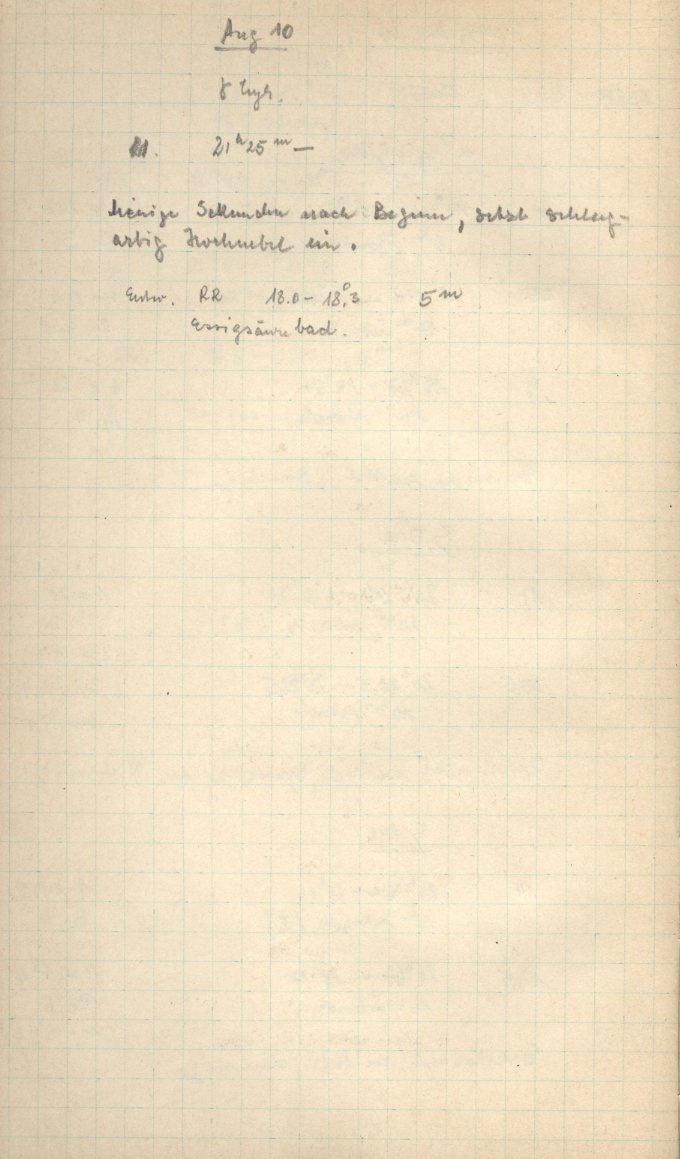 Aug 10
γ Cygn.
21ʰ25ᵐ —
Wenige Sekunden nach Beginn, setzt schlag-
artig Hochnebel ein.
Entw. RR 18.0 – 18°.3 5ᵐ
Essigsäurebad.